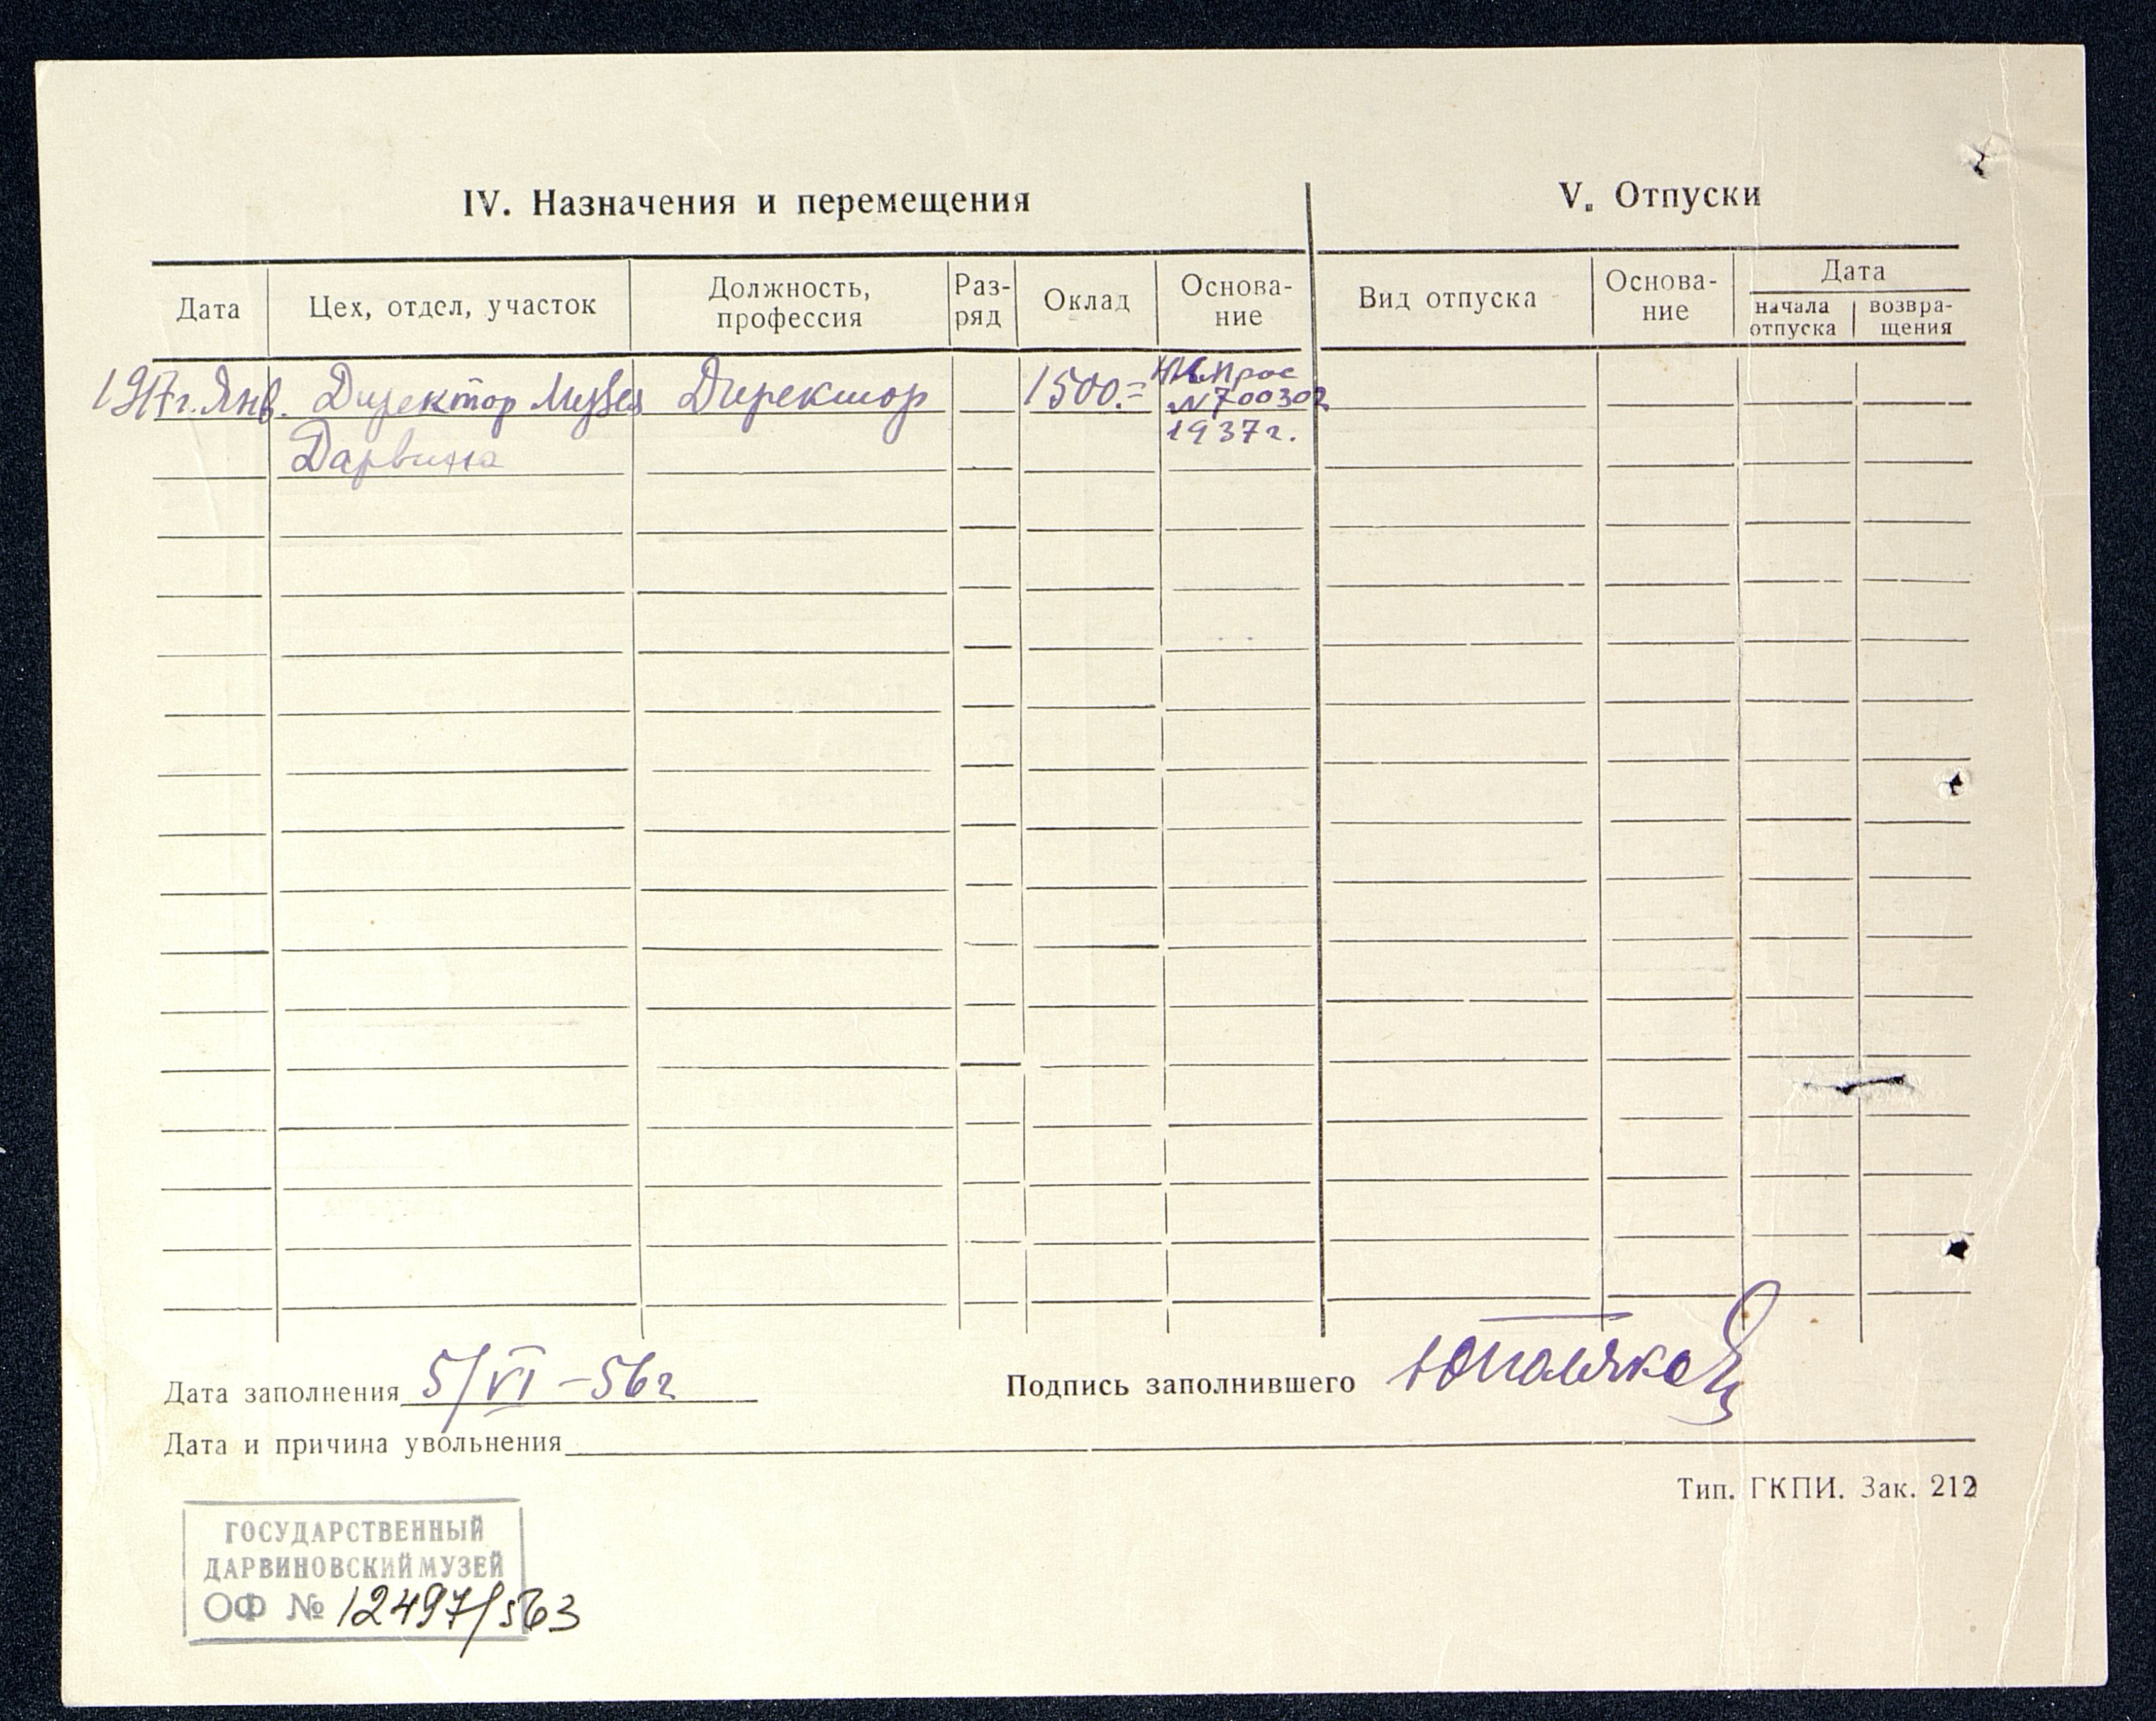 IV. Назначения и перемещения
V. Отпуски
Дата
Цех, отдел, участок
Должность,
профессия
Раз-
ряд
Оклад
Основа-
ние
Вид отпуска
Основа-
ние
Дата
начала
отпуска
возвра-
щения
1917г. Янв. Директор Музея Директор 1500.=
Дарвина
Прос
№700302
1937г.
Дата заполнения 5/VI-56г
Подпись заполнившего
Дата и причина увольнения
Тип. ГКПИ. Зак. 212
ГОСУДАРСТВЕННЫЙ
ДАРВИНОВСКИЙ МУЗЕЙ
ОФ № 12497/563